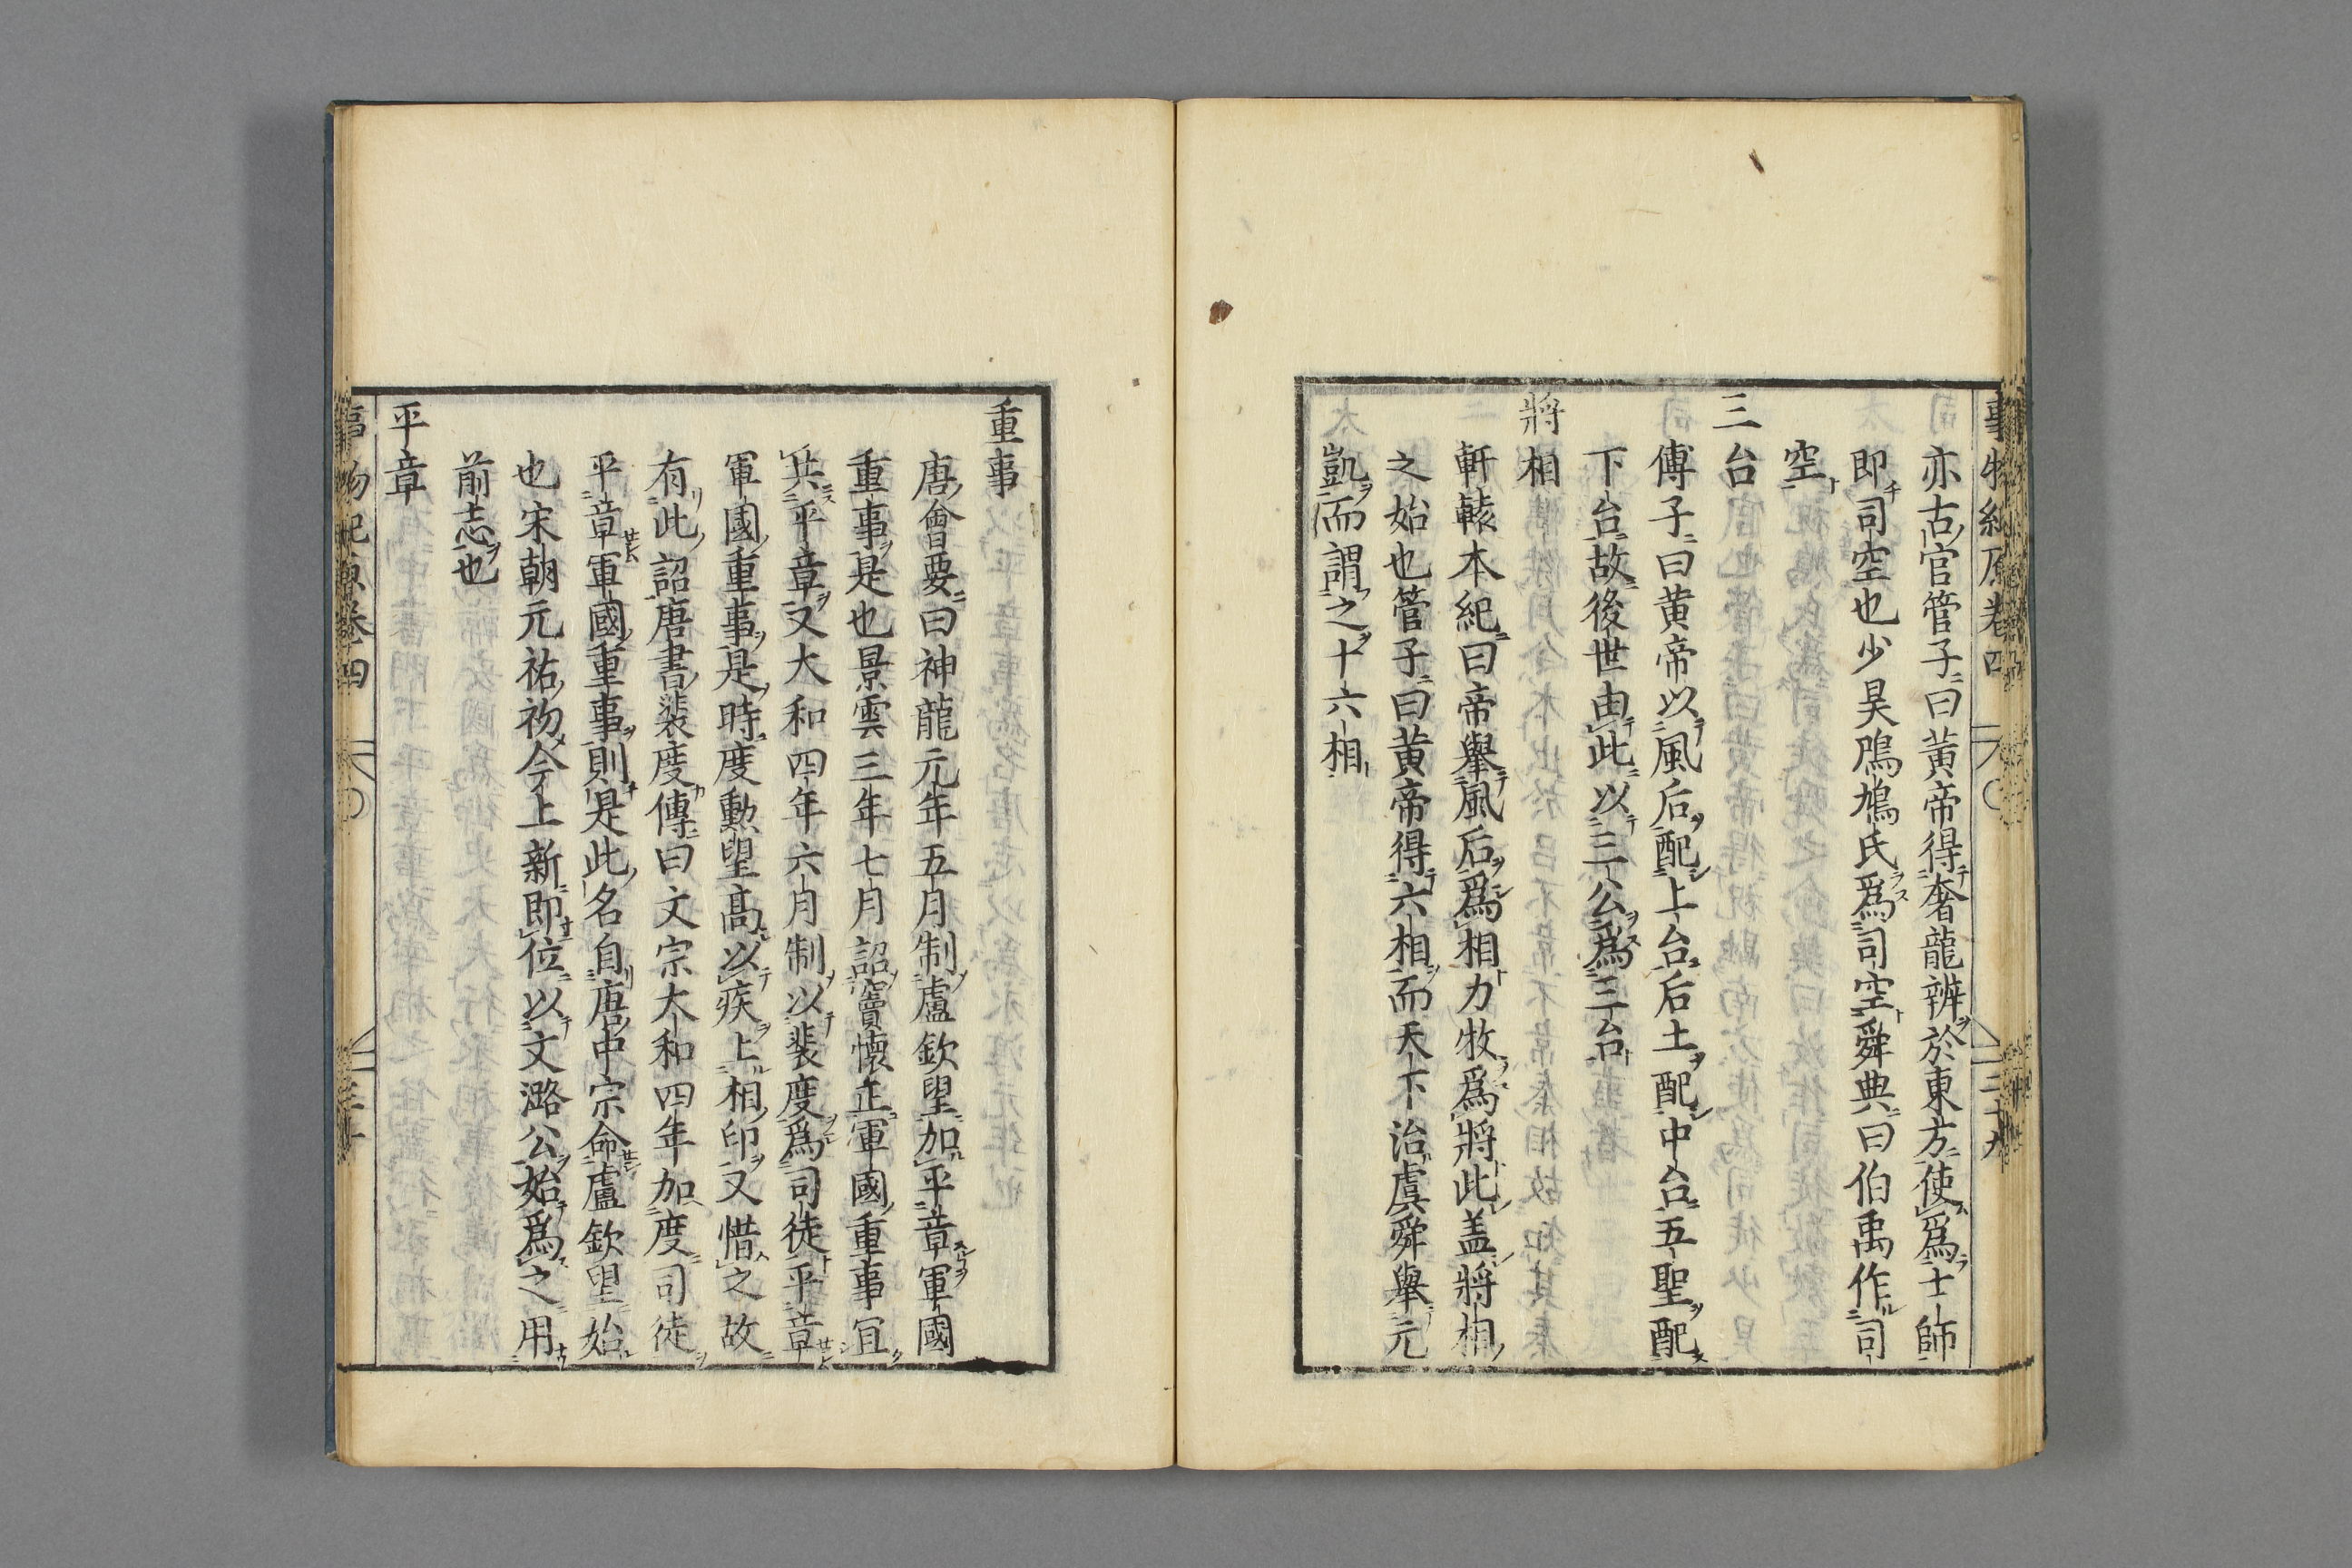 事物紀原卷四
亦古官管子曰黃帝得奢龍辨於東方使爲士師
即司空也少昊鳲鳩氏爲司空舜典曰伯禹作司
空
三台
傅子曰黃帝以風后配上台后土配中台五聖配
下台故後世由此以三公爲三台
將相
軒轅本紀曰帝舉風后爲相力牧爲將此盖將相
之始也管子曰黃帝得六相而天下治虞舜舉元
凱而謂之十六相
重事
唐會要曰神龍元年五月制盧欽望加平章軍國
重事是也景雲三年七月詔竇懷正軍國重事冝
共平章又大和四年六月制以裴度爲司徒平章
軍國重事是時度勲望高以疾上相印又惜之故
有此詔唐書裴度傳曰文宗大和四年加度司徒
平章軍國重事則是此名自唐中宗命盧欽望始
也宋朝元祐初今上新即位以文潞公始爲之用
前志也
平章
事物紀原卷四